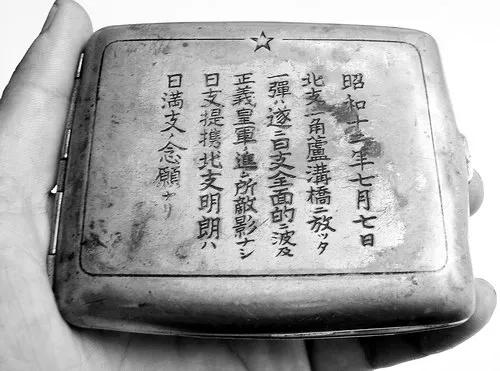 昭和十二年七月七日
北支ノ一角蘆溝橋ニ放ッタ
一彈ハ遂ニ日支全面的ニ波及
正義皇軍ノ進ム所敵影ナシ
日支提携北支明朗ハ
日満支ノ念願ナリ